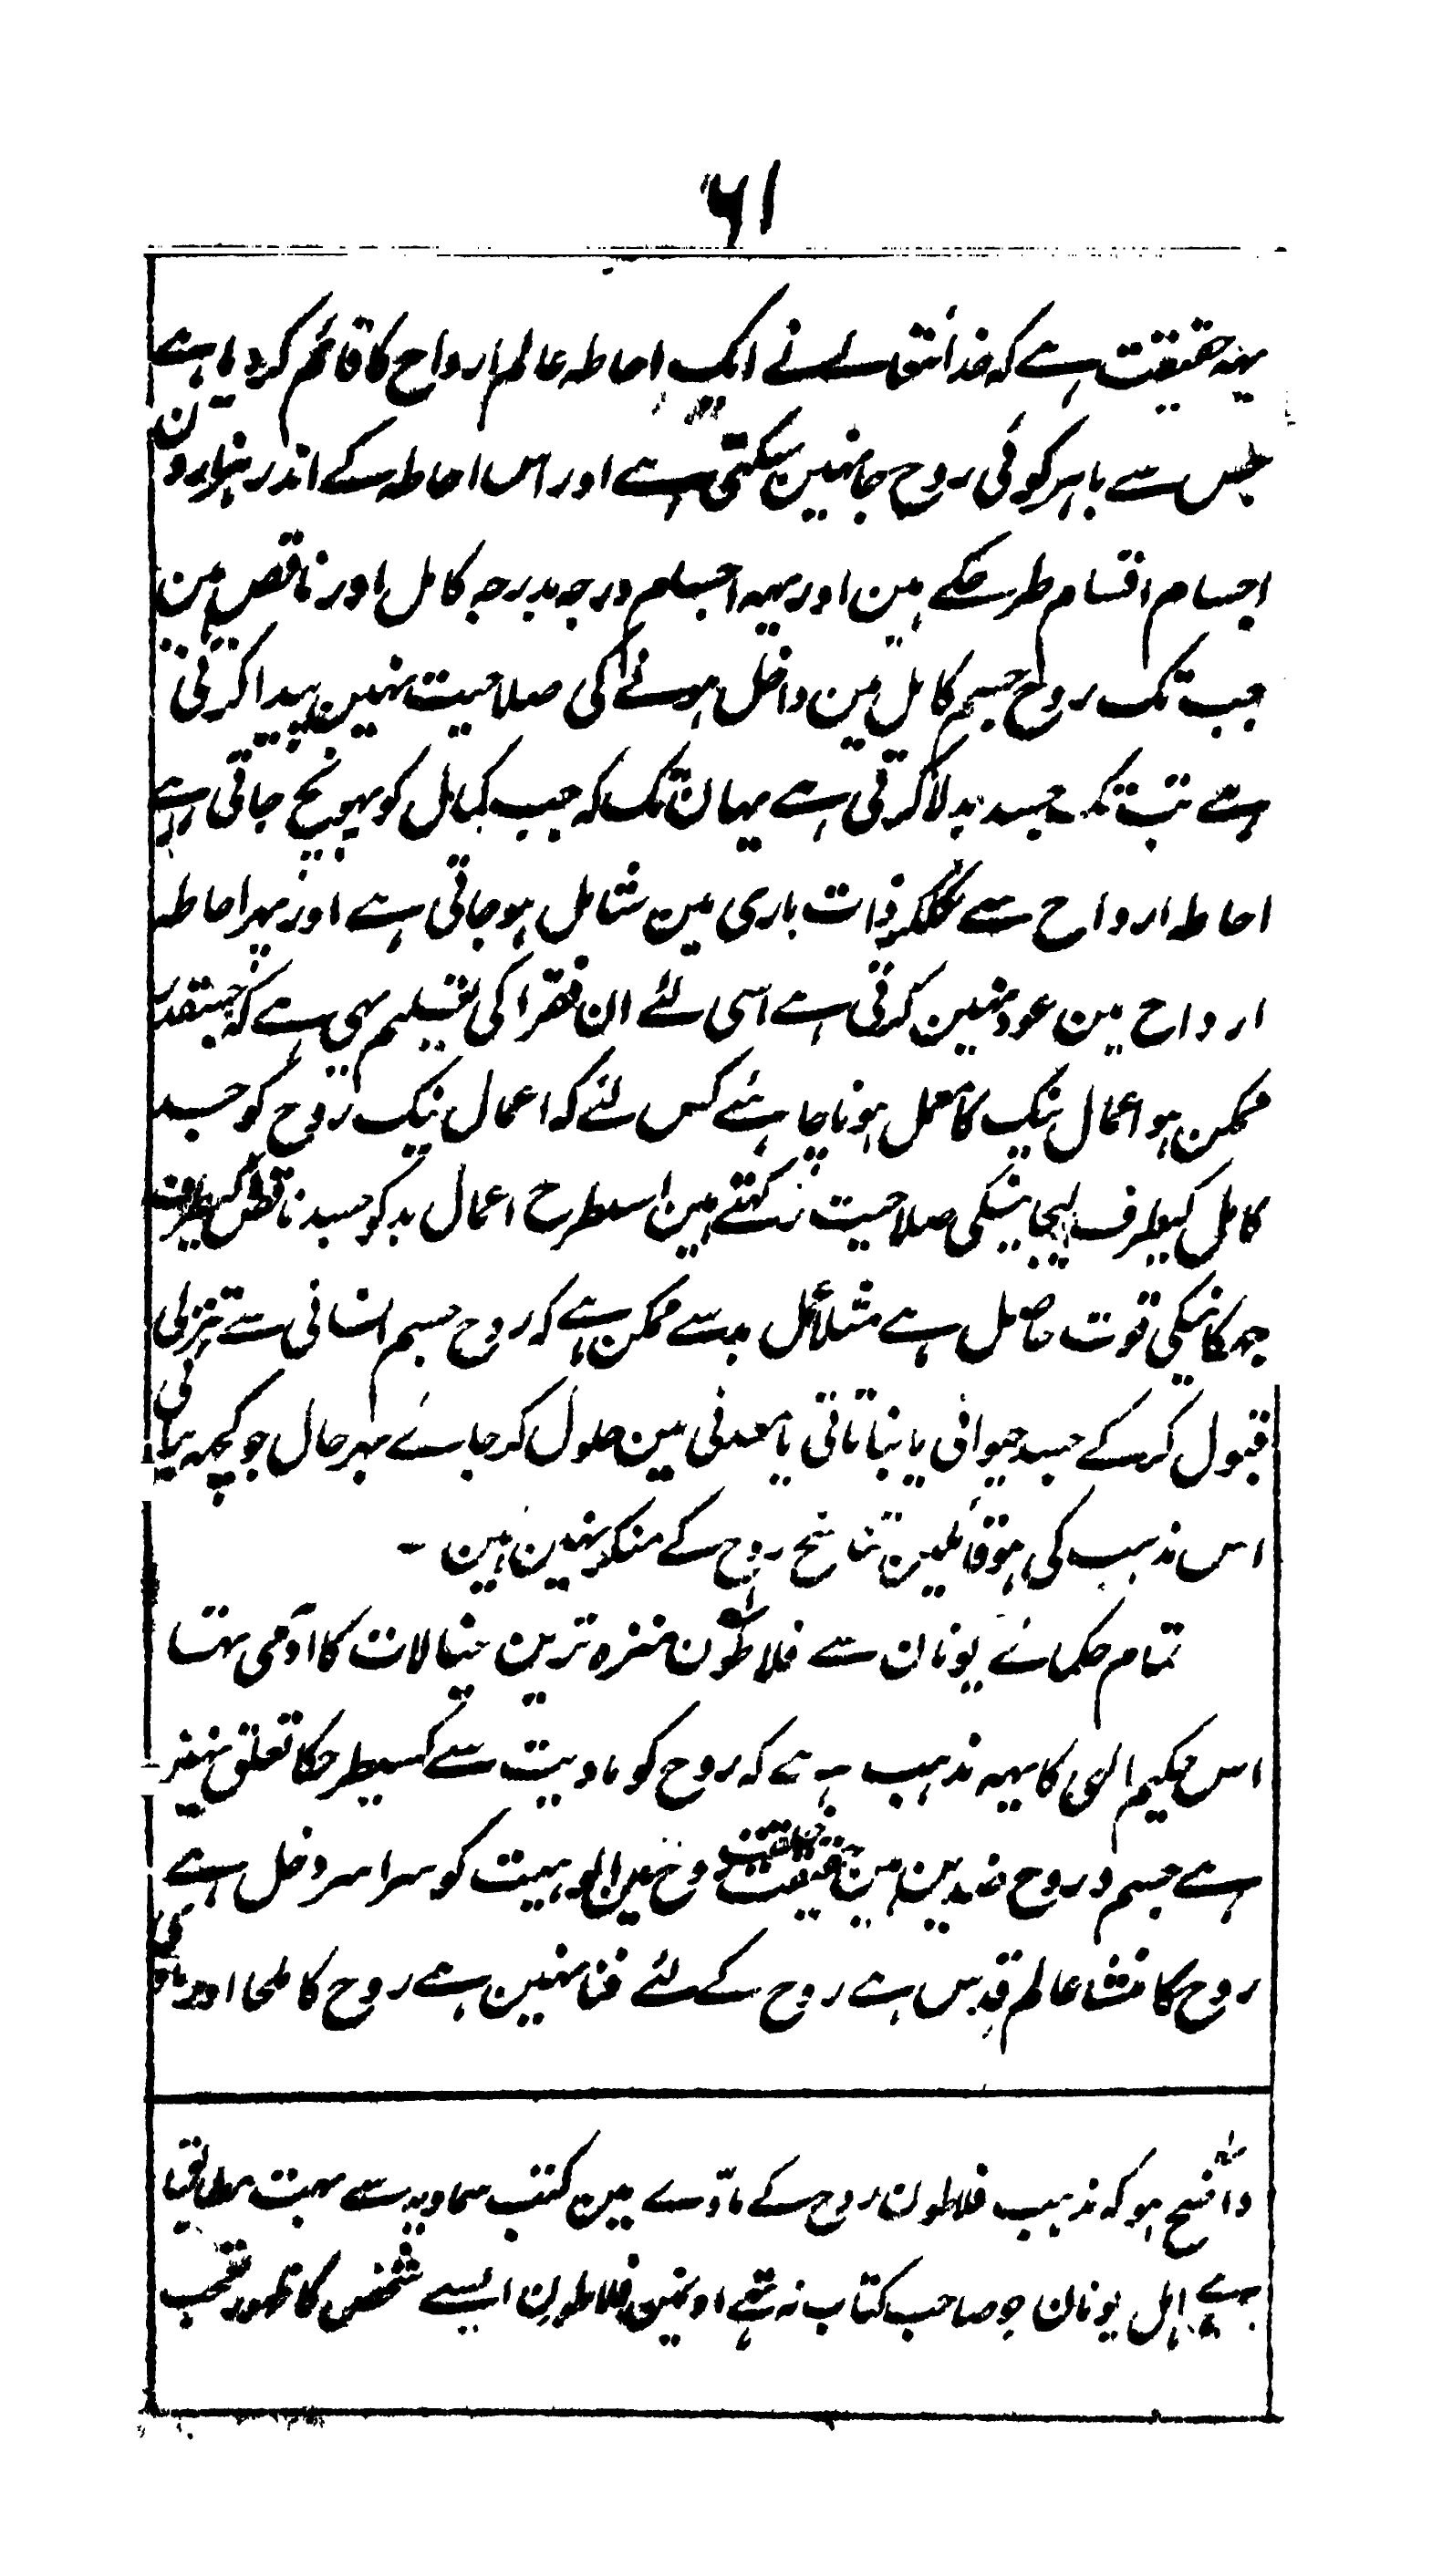 ۶۱
یہہ حقیقت ہے کہ خدائتعالے نے ایک احاطہ عالم ارواح کا قائم کردیا ہے
جس سے باہر کوئی روح جا نہین سکتی ہے اور اس احاطہ کے اندر ہزارون
اجسام اقسام طرحکے ہین اور یہہ اجسام درجہ بدرجہ کامل اور ناقص ہین
جب تک روح جسم کامل مین داخل ہونے کی صلاحیت نہین پیدا کرتی
ہے تب تک جسد بدلا کرتی ہے یہان تک کہ جب کمال کو پہونچ جاتی ہے
احاطہ ارواح سے نکلکر ذات باری مین شامل ہو جاتی ہے اور پہر احاطہ
ارواح مین عود نہین کرتی ہے اسی لئے ان فقرا کی تعلیم یہی ہے کہ جسقدر
ممکن ہو اعمال نیک کا عمل ہونا چاہئے کس لئے کہ اعمال نیک روح کو جسد
کامل کیطرف لیجانیکی صلاحیت رکہتے ہین اسطرح اعمال بد کو جسد ناقص کیطرف
جہکانیکی قوت حاصل ہے مثلاً عمل بد سے ممکن ہے کہ روح جسم انسانی سے تنزلی
قبول کرکے جسد حیوانی یا نباتاتی یا معدنی مین حلول کر جاے بہر حال جو کچہہ بنیانی
اس مذہب کی ہو قائلین تناسخ روح کے منکر نہین ہین ۔
تمام حکمائے یونان سے فلاطون منزہ ترین خیالات کا آدمی تہا
اس حکیم الہی کا یہہ مذہب ہے کہ روح کو مادیت سے کسیطرحکا تعلق نہین
ہے جسم و روح ضدین ہین حقیقت روح مین الوہیت کو سراسر دخل ہے
روح کا منشا عالم قدس ہے روح کے لئے فنا نہین ہے روح کا ملجا اور ماوٰی
واضح ہو کہ مذہب فلاطون روح کے مادّے مین کتب سماویہ سے بہت مطابق
ہے اہل یونان جو صاحب کتاب نہ تہے اونمین فلاطون ایسے شخص کا ظہور تعجب